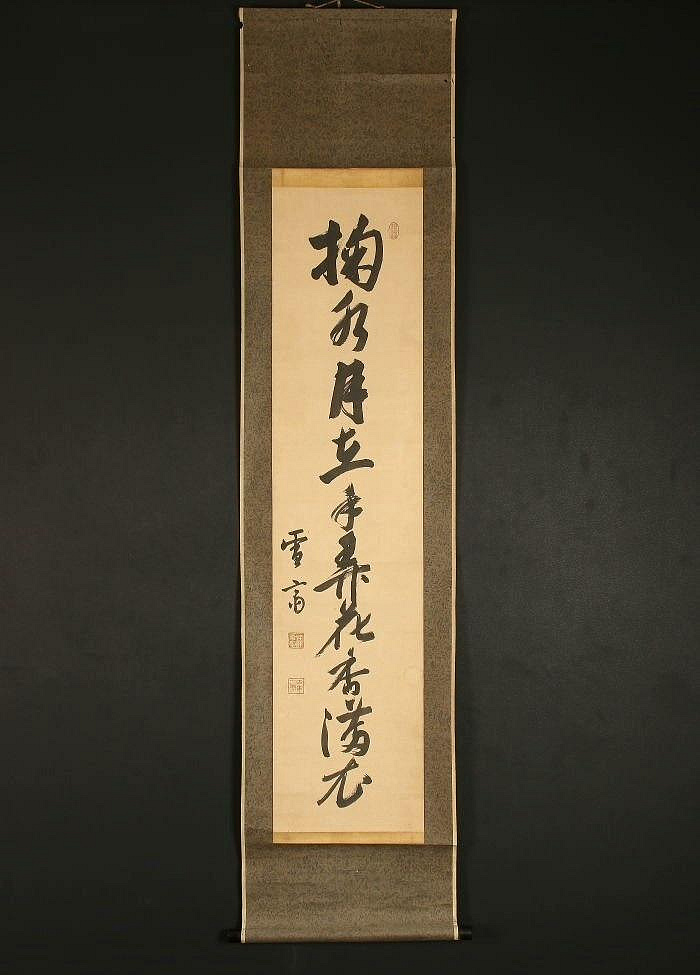 掬水月在手弄花香満衣
雪斎